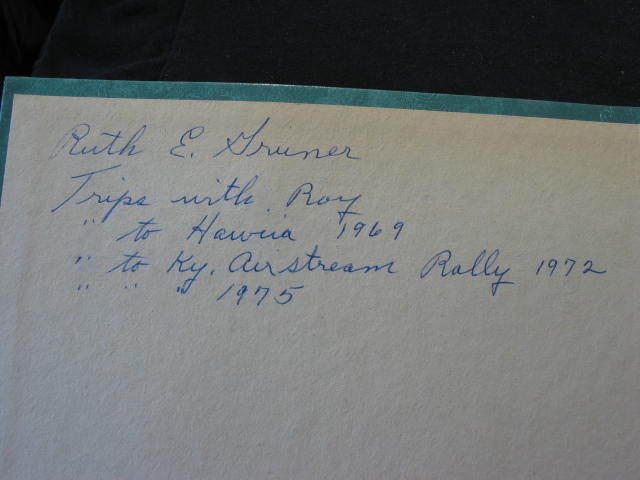 Ruth E. Gruner
Trips with Roy
" to Hawiia 1969
" to Ky. Airstream Rally 1972
" " " 1975